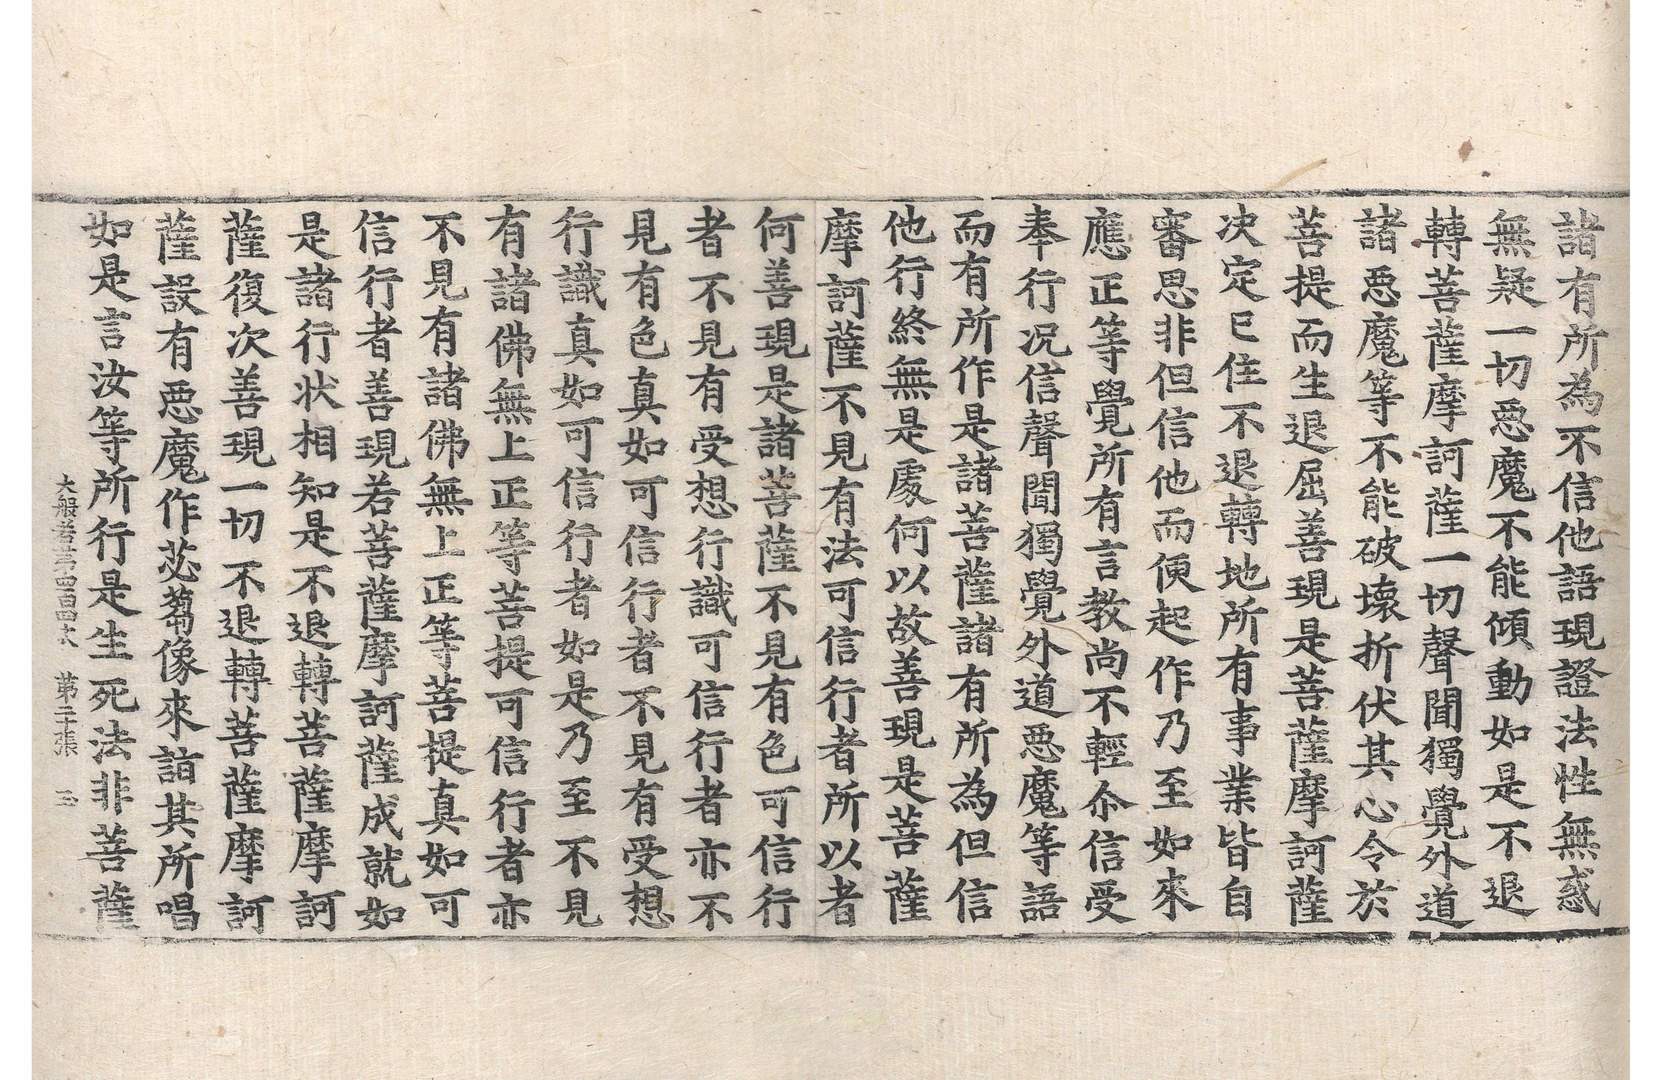 諸有所為不信他語現證法性無惑
無疑一切惡魔不能傾動如是不退
轉菩薩摩訶薩一切聲聞獨覺外道
諸惡魔等不能破壞折伏其心令於
菩提而生退屈善現是菩薩摩訶薩
决定已住不退轉地所有事業皆自
審思非但信他而便起作乃至如來
應正等覺所有言教尚不輕尒信受
奉行况信聲聞獨覺外道惡魔等語
而有所作是諸菩薩諸有所為但信
他行終無是處何以故善現是菩薩
摩訶薩不見有法可信行者所以者
何善現是諸菩薩不見有色可信行
者不見有受想行識可信行者亦不
見有色真如可信行者不見有受想
行識真如可信行者如是乃至不見
有諸佛無上正等菩提可信行者亦
不見有諸佛無上正等菩提真如可
信行者善現若菩薩摩訶薩成就如
是諸行状相知是不退轉菩薩摩訶
薩復次善現一切不退轉菩薩摩訶
薩設有惡魔作苾蒭像來詣其所唱
如是言汝等所行是生死法非菩薩
大般若第四百四十八 第二十張